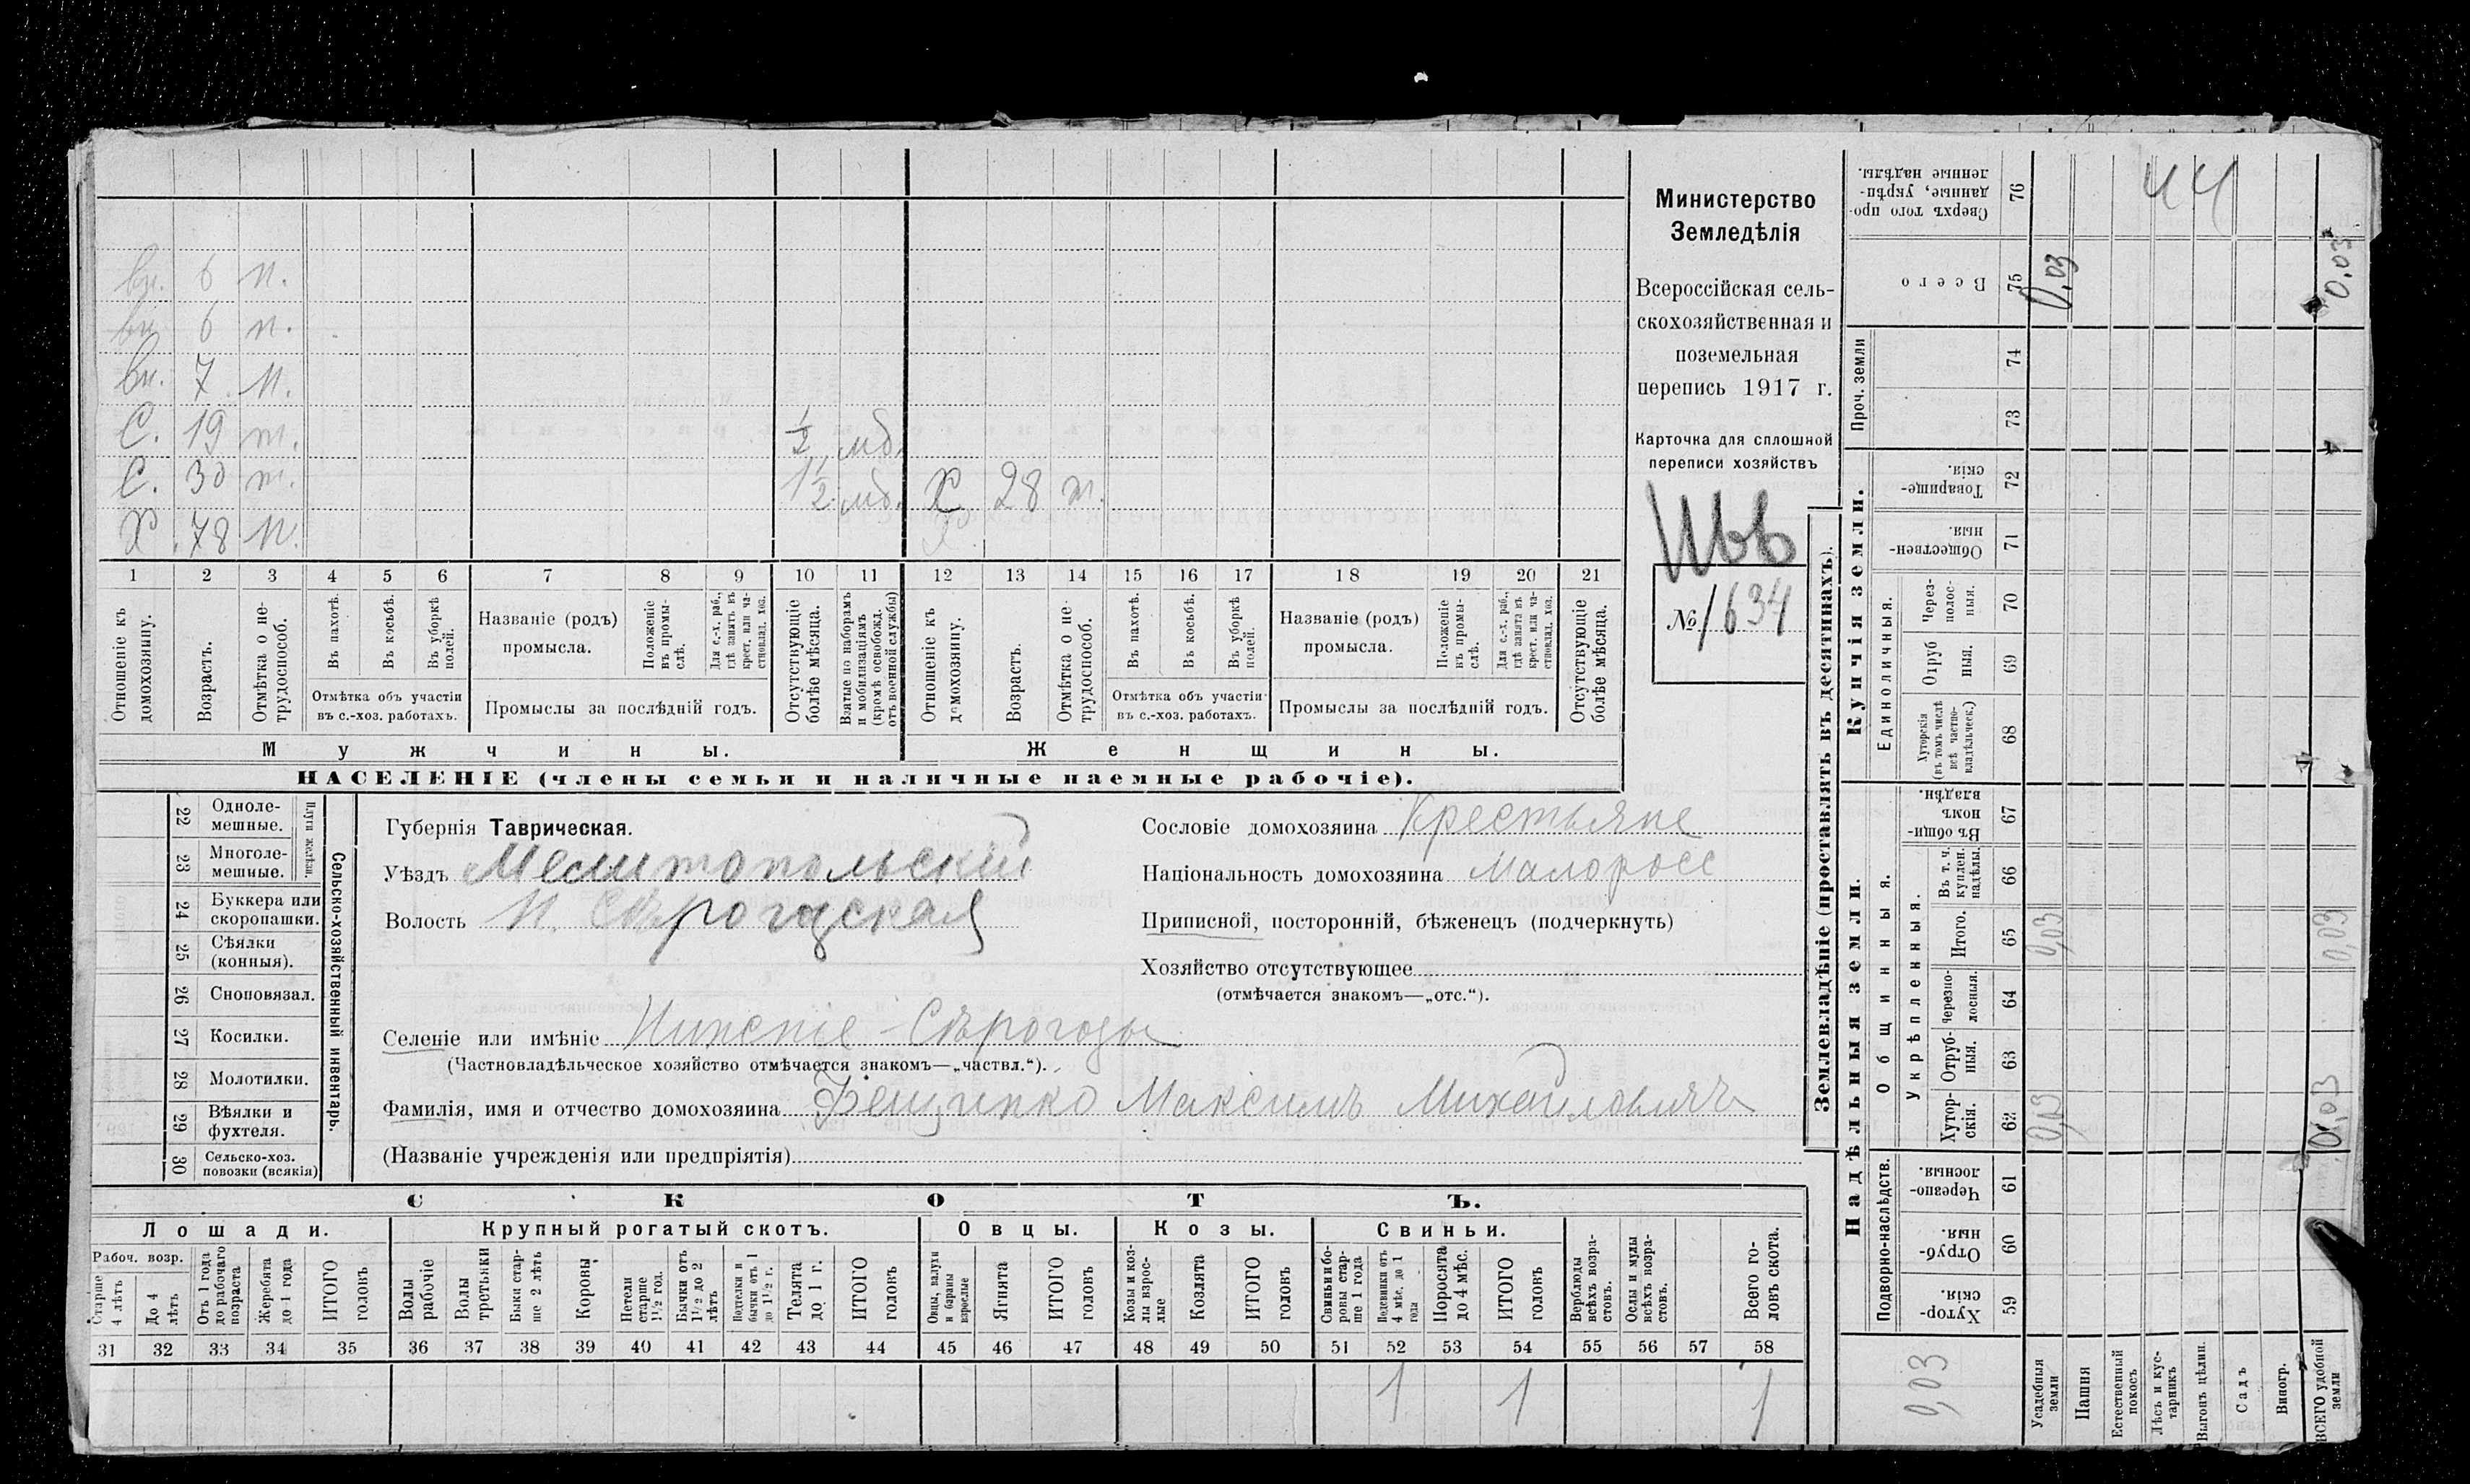 вн. 6 п.
вн. 6 п.
вн. 7 п.
С. 19 т. ½ мб.
С. 30 т. 1½ мб. Х 28 т.
Х 78 п.
1 2 3 4 5 6 7 8 9 10 11 12 13 14 15 16 17 18 19 20 21
Отношеніе къ домохозяину.
Возрастъ.
Отмѣтка о не-трудоспособ.
Въ пахотѣ.
Въ косьбѣ.
Въ уборкѣ полей.
Отмѣтка объ участіи
въ с.-хоз. работахъ.
Названіе (родъ)
промысла.
Положеніе въ промы-слѣ.
Для с.-х. раб., гдѣ занятъ въ крест. или ча-стновлад. хоз.
Промыслы за послѣдній годъ.
Отсутствующіе болѣе мѣсяца.
Взятые по наборамъ и мобилизаціямъ (кромѣ освобожд. отъ военной службы)
Отношеніе къ домохозяину.
Возрастъ.
Отмѣтка о не-трудоспособ.
Въ пахотѣ.
Въ косьбѣ.
Въ уборкѣ полей.
Отмѣтка объ участіи
въ с.-хоз. работахъ.
Названіе (родъ)
промысла.
Положеніе въ промы-слѣ.
Для с.-х. раб., гдѣ занята въ крест. или ча-стновлад. хоз.
Промыслы за послѣдній годъ.
Отсутствующіе болѣе мѣсяца.
Мужчины.
Женщины.
НАСЕЛЕНІЕ (члены семьи и наличные наемные рабочіе).
Министерство
Земледѣлія
Всероссійская сель-
скохозяйственная и
поземельная
перепись 1917 г.
Карточка для сплошной
переписи хозяйствъ
№ 1634
22 Одноле-мешные.
23 Многоле-мешные.
Плуги желѣзн.
24 Буккера или скоропашки.
25 Сѣялки (конныя).
26 Сноповязал.
27 Косилки.
28 Молотилки.
29 Вѣялки и фухтеля.
30 Сельско-хоз. повозки (всякія)
Сельско-хозяйственный инвентарь.
Губернія Таврическая.
Уѣздъ Мелитопольскій
Волость Н. Сѣрогозская
Сословіе домохозяина Крестьяне
Національность домохозяина малоросс
Приписной, посторонній, бѣженецъ (подчеркнуть)
Хозяйство отсутствующее
(отмѣчается знакомъ—„отс.“).
Селеніе или имѣніе Нижніе-Сѣрогозы
(Частновладѣльческое хозяйство отмѣчается знакомъ—„частвл.“).
Фамилія, имя и отчество домохозяина Максимъ Михайловичъ
(Названіе учрежденія или предпріятія)
СКОТЪ.
Лошади. Крупный рогатый скотъ. Овцы. Козы. Свиньи.
Рабоч. возр.
Старше 4 лѣтъ
До 4 лѣтъ
Отъ 1 года до рабочаго возраста
Жеребята до 1 года
ИТОГО головъ
Волы рабочіе
Волы третьяки
Быки стар-ше 2 лѣтъ
Коровы
Нетели старше 1½ год.
Бычки отъ 1½ до 2 лѣтъ
Подтелки и бычки отъ 1 до 1½ г.
Телята до 1 г.
ИТОГО головъ
Овцы, валухи и бараны взрослые
Ягнята
ИТОГО головъ
Козы и коз-лы взрос-лые
Козлята
ИТОГО головъ
Свиньи и бо-ровы стар-ше 1 года
Подсвинки отъ 4 мѣс. до 1 года
Поросята до 4 мѣс.
ИТОГО головъ
Верблюды всѣхъ возра-стовъ.
Ослы и мулы всѣхъ возра-стовъ.
Всего го-ловъ скота.
31 32 33 34 35 36 37 38 39 40 41 42 43 44 45 46 47 48 49 50 51 52 53 54 55 56 57 58
1 1 1
Землевладѣніе (проставлять въ десятинахъ).
Сверхъ того про-данные, укрѣп-ленные надѣлы. 76 44
Всего 75 0.03 0.03
Проч. земли 74 73
Купчія земли.
Товарище-скія. 72
Обществен-ныя 71
Единоличныя.
Через-полос-ныя. 70
Отруб-ныя. 69
Хуторскія (въ томъ числѣ всѣ частно-владѣльческ.) 68
Надѣльныя земли.
Общинныя.
Въ общин-номъ владѣн. 67
Укрѣпленныя.
Въ т. ч. куплен. надѣлы. 66
Итого. 65 0,03 0,03
Черезпо-лосныя. 64
Отруб-ныя. 63
Хутор-скія. 62 0,03 0,03
Подворно-наслѣдств.
Черезпо-лосныя. 61
Отруб-ныя. 60
Хутор-скія. 59
0,03
Усадебныя земли
Пашня
Естественный покосъ
Лѣсъ и кус-тарникъ
Выгонъ цѣлин.
Садъ
Виногр.
ВСЕГО удобной земли